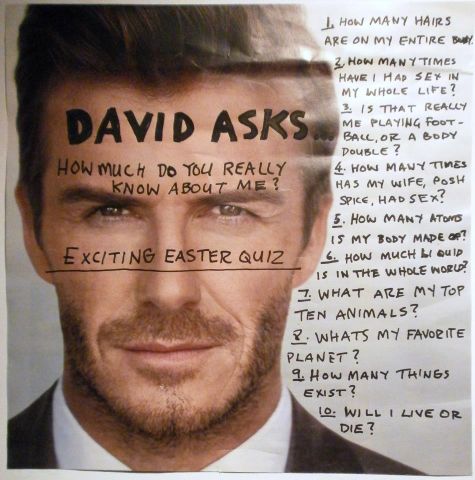 DAVID ASKS...
HOW MUCH DO YOU REALLY
KNOW ABOUT ME?
EXCITING EASTER QUIZ
1. HOW MANY HAIRS
ARE ON MY ENTIRE BODY.
2. HOW MANY TIMES
HAVE I HAD SEX IN
MY WHOLE LIFE?
3. IS THAT REALLY
ME PLAYING FOOT-
BALL, OR A BODY
DOUBLE?
4. HOW MANY TIMES
HAS MY WIFE, POSH
SPICE, HAD SEX?
5. HOW MANY ATOMS
IS MY BODY MADE OF?
6. HOW MUCH LIQUID
IS IN THE WHOLE WORLD?
7. WHAT ARE MY TOP
TEN ANIMALS?
8. WHATS MY FAVORITE
PLANET?
9. HOW MANY THINGS
EXIST?
10. WILL I LIVE OR
DIE?